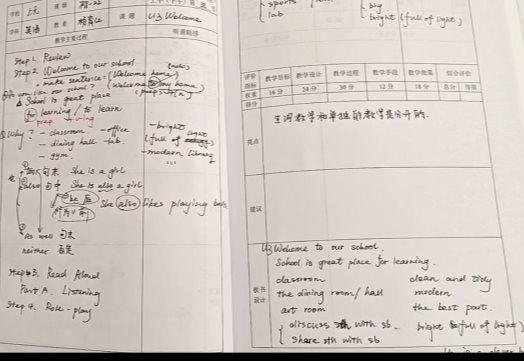 学校 上元 课题
学科 英语 教者 课题 U3 Welcome
教学主要过程 听课随感
Step 1. Review
Step 2. Welcome to our school
make sentence: (Welcome home)
our school? (Welcome to my home)
School is great place
for learning / to learn
prep. v-ing
Why? - classroom - office - bright
- dining hall - lab. (full of light)
- gym. - modern library
...
too 句末 She is a girl
also 句中 She is also a girl
be 后
She also likes playing
as well 句末
neither 否定
Step 3. Read Aloud
Part A. Listening
Step 4. Role-play
sports
lab
big
bright (full of light)
评价指标 教学目标 教学设计 教学过程 教学手段 教学效果 综合评价
权重 16分 24分 30分 12分 18分 总分 等第
得分
亮点
生词教学和单独的教学是分开的.
建议
板书设计
U3 Welcome to our school.
School is great place for learning.
classroom clean and tidy
the dining room / hall modern
art room the best part.
discuss sth with sb. bright (full of light)
share sth with sb